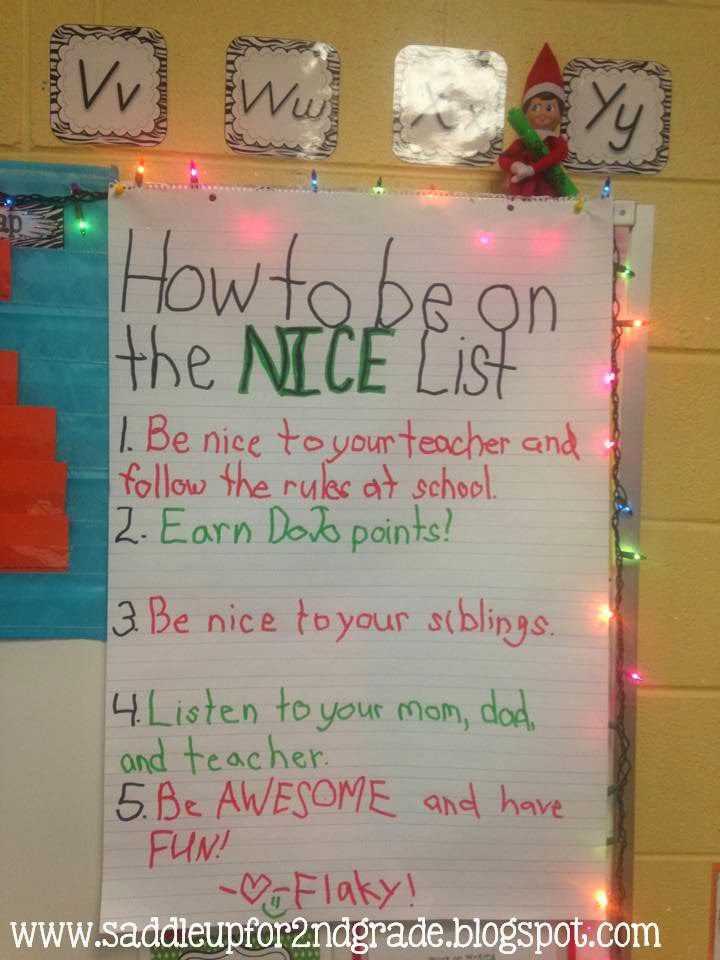 Vv
Ww
Xx
Yy
ap
How to be on
the NICE List
1. Be nice to your teacher and
follow the rules at school.
2. Earn DoJo points!
3. Be nice to your siblings.
4. Listen to your mom, dad,
and teacher.
5. Be AWESOME and have
FUN!
-♡-Flaky!
www.saddleupfor2ndgrade.blogspot.com